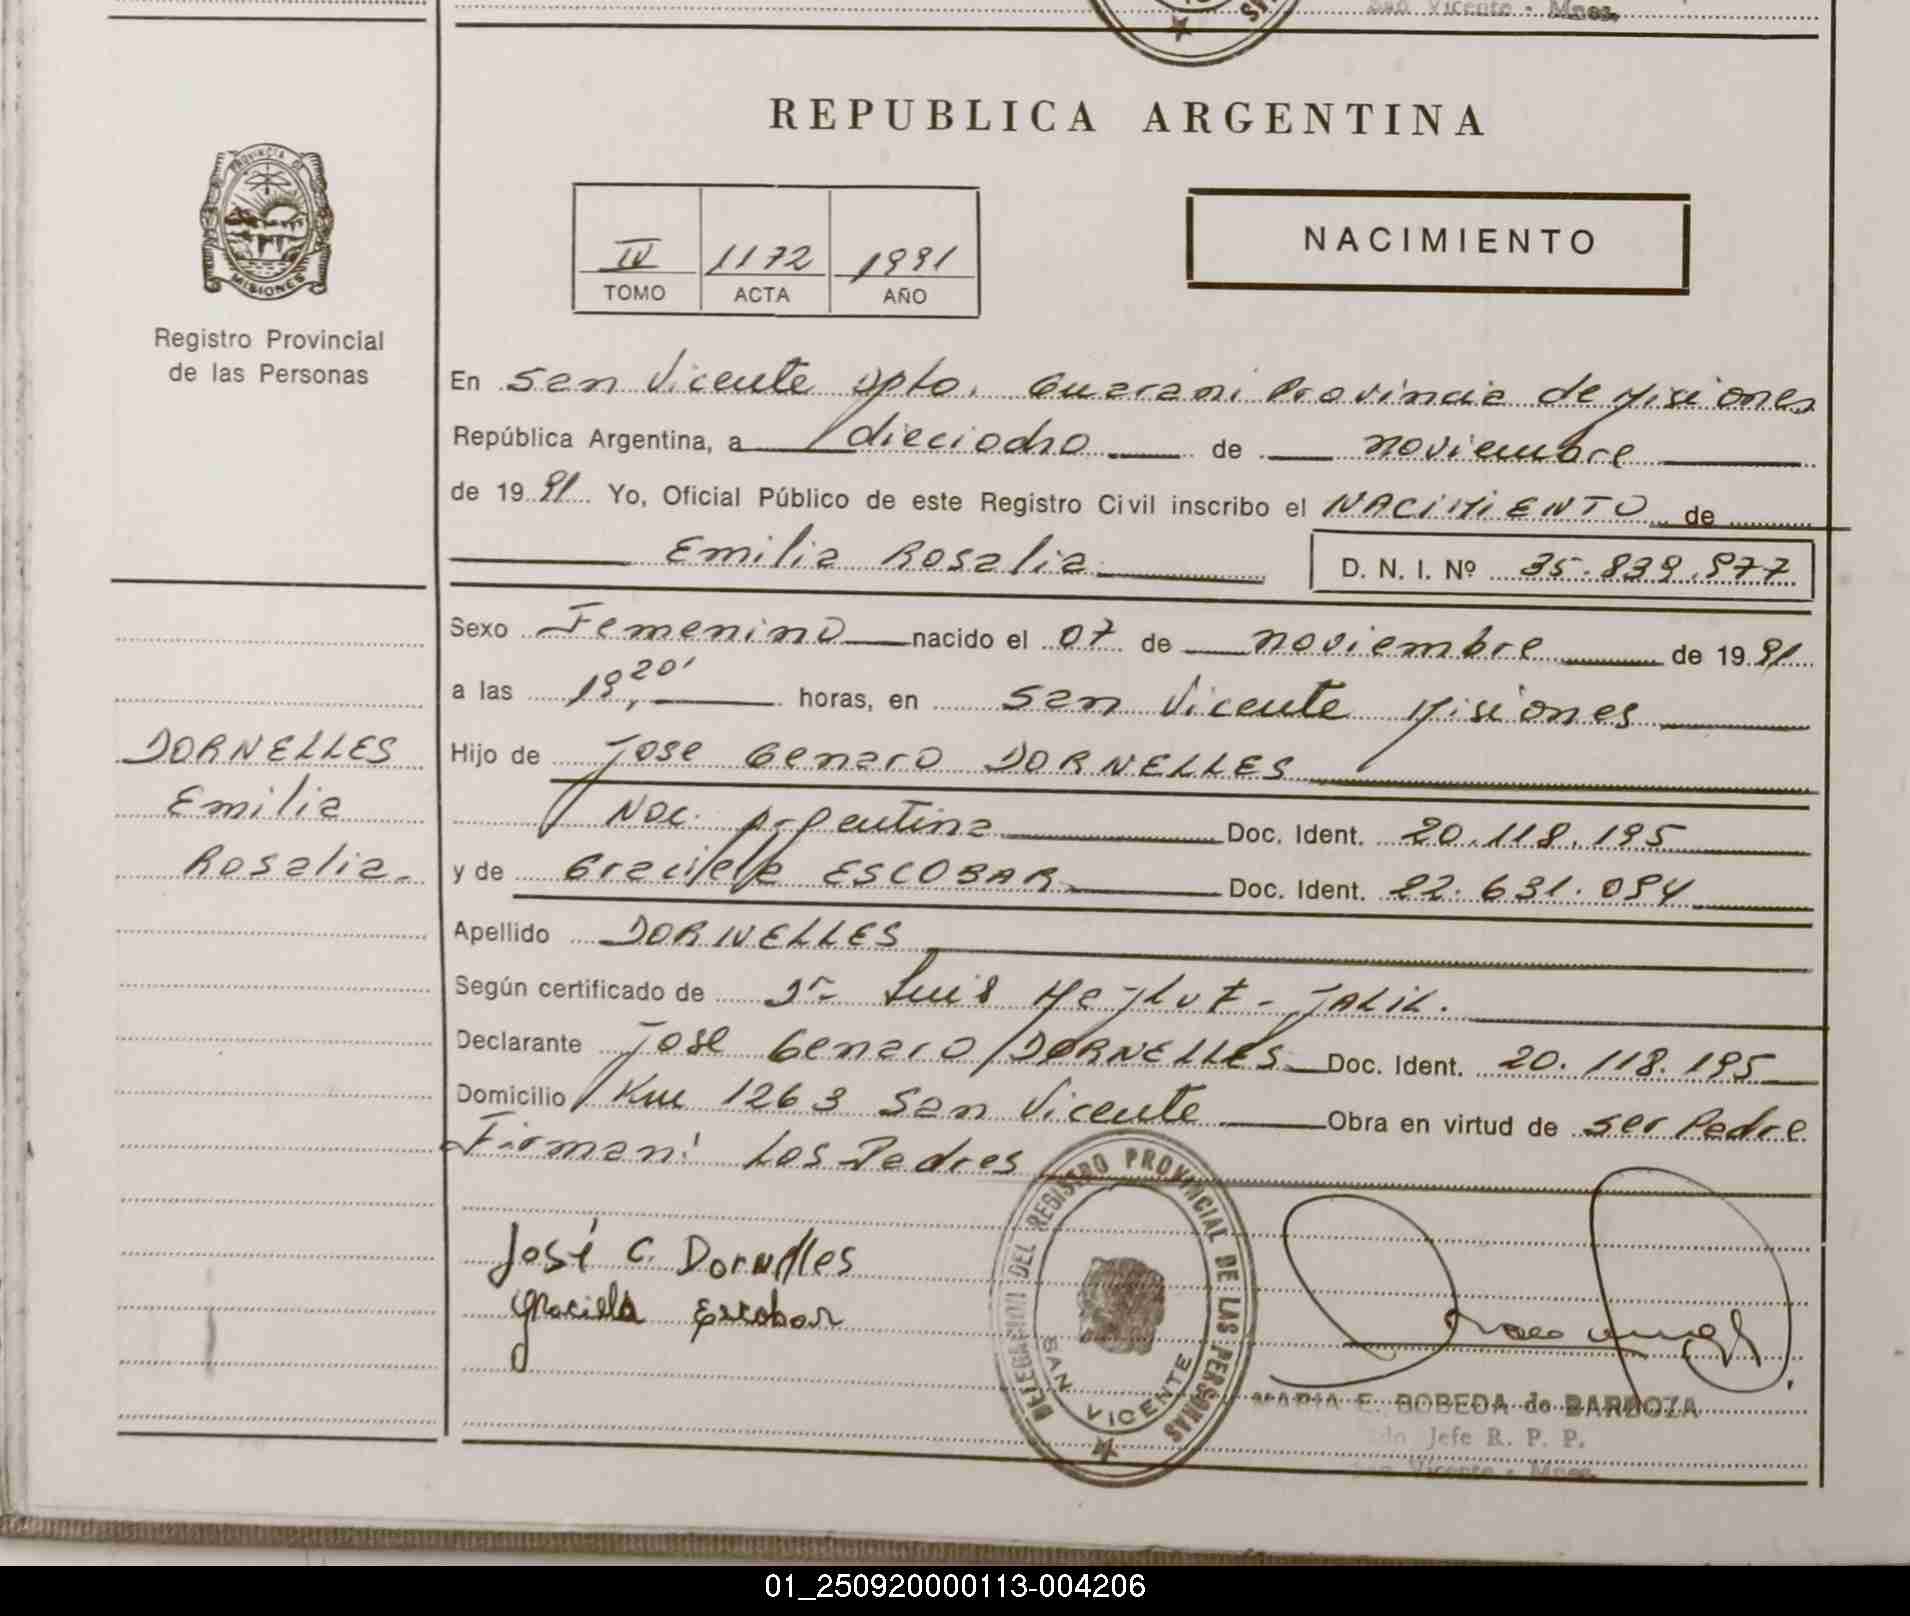 San Vicente - Mnes.
REPUBLICA ARGENTINA
PROVINCIA DE
MISIONES
Registro Provincial
de las Personas
IV 1172 1991
TOMO ACTA AÑO
NACIMIENTO
En San Vicente Dpto. Guarani Provincia de Misiones
República Argentina, a dieciocho de noviembre
de 1991 Yo, Oficial Público de este Registro Civil inscribo el NACIMIENTO de
Emilia Rosalia
D. N. I. Nº 35.839.977
Sexo Femenino nacido el 07 de noviembre de 1991
a las 19,20' horas, en San Vicente Misiones
Hijo de Jose Genaro DORNELLES
Nac. Argentina Doc. Ident. 20.118.195
y de Graciela ESCOBAR Doc. Ident. 22.631.094
Apellido DORNELLES
Según certificado de Dr Luis JALIL.
Declarante Jose Genaro DORNELLES Doc. Ident. 20.118.195
Domicilio Km 1263 San Vicente Obra en virtud de ser Padre
Firman: Los Padres
DORNELLES
Emilia
Rosalia.
José G. Dornelles
Graciela Escobar
DELEGACION DEL REGISTRO PROVINCIAL DE LAS PERSONAS
SAN VICENTE
MARIA E. BOBEDA de BARBOZA
Jefe R. P. P.
San Vicente - Mnes.
01_250920000113-004206